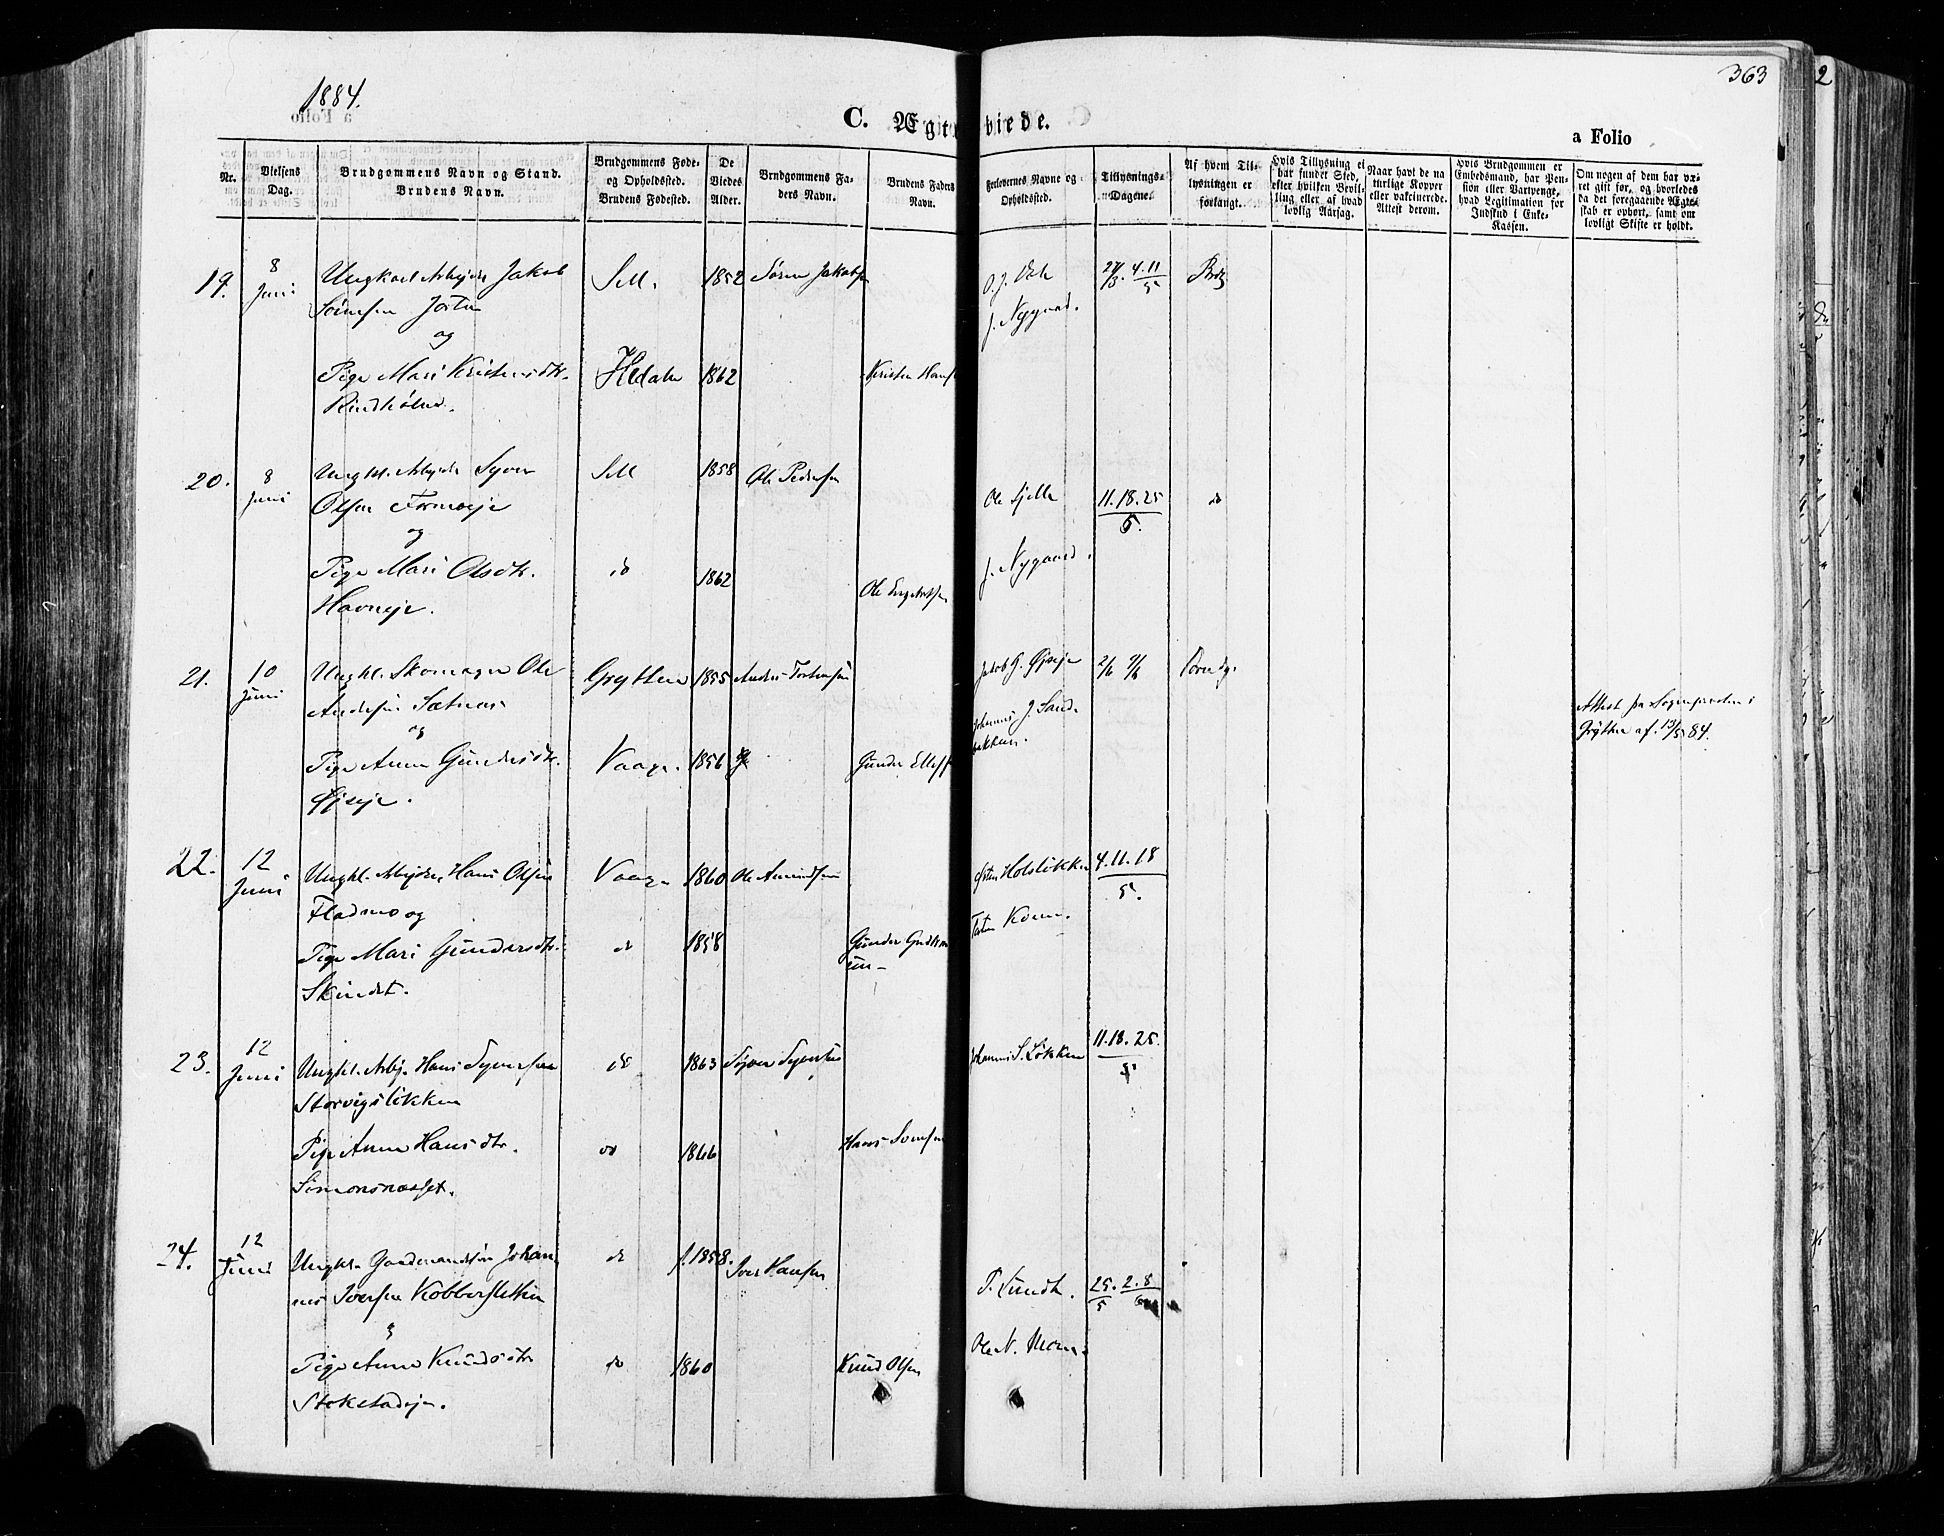 1884.
363
C. Ægteviede.
a Folio
Nr.
Vielsens Dag.
Brudgommens Navn og Stand. Brudens Navn.
Brudgommens Føde- og Opholdssted. Brudens Fødested.
De Viedes Alder.
Brudgommens Faders Navn.
Brudens Faders Navn.
Forlovernes Navne og Opholdssted.
Tillysnings-Dagene.
Af hvem Tillysningen er forlangt.
Hvis Tillysning ei har fundet Sted, efter hvilken Bevilling eller af hvad lovlig Aarsag.
Naar havt de naturlige Kopper eller vakcinerede. Attest derom.
Hvis Brudgommen er Embedsmand, har Pension eller Vartpenge, hvad Legitimation for Indskud i Enke-Kassen.
Om nogen af dem har været gift før, og hvorledes da det foregaaende Ægteskab er ophørt, samt om lovligt Skifte er holdt.
19. 8 Juni Ungkarl Arbejder Jakob Sell. 1852 Søren Jakobsen
Sørensen
J. Nygaard.
og
Pige Mari Kristensdtr. Hedalen 1862 Kristen Hansen
20. 8 Juni Ungkl. Arbejder Syver Sell 1858 Ole Pedersen
Olsen Formoeje Ole Sjelle 11.18.25/5. do
og
Pige Mari Olsdtr. do 1862 J. Nygaard.
Havneje. Ole Engebretsen
21. 10 Juni Ungkl. Skomager Ole Grytten 1855 Anders Torstensen Jakob G. Øjeeje
Andersen Sætnes
og
Johannes J. Sandbakken.
Attest fra Sognepresten i
Grytten af 13/5 84.
Pige Anne Gundersdtr. Vaage. 1856 Gunder Ellefs
Øjeeje.
22. 12 Juni Ungkl. Arbejder Hans Olsen Vaage 1860 Ole Amundsen 4.11.18/5.
Fladmo og
Pige Mari Gundersdtr. do 1858
Skindet.
23. 12 Juni Ungkl. Arbj. Hans Syversen do 1863 Syver Syversen Johannes S. Løkken 11.18.25./5
Storvigsløkken
Pige Anne Hansdtr. do 1866
Simonsnæsset.
24. 12 Juni Ungkl. Gaardmandssøn Johan- do f. 1858. Iver Hansen
nes Iversen Kobbersletten T. Sundt. 25/5. 2.8/6
og
Pige Anne Knudsdtr do 1860 Knud Olsen